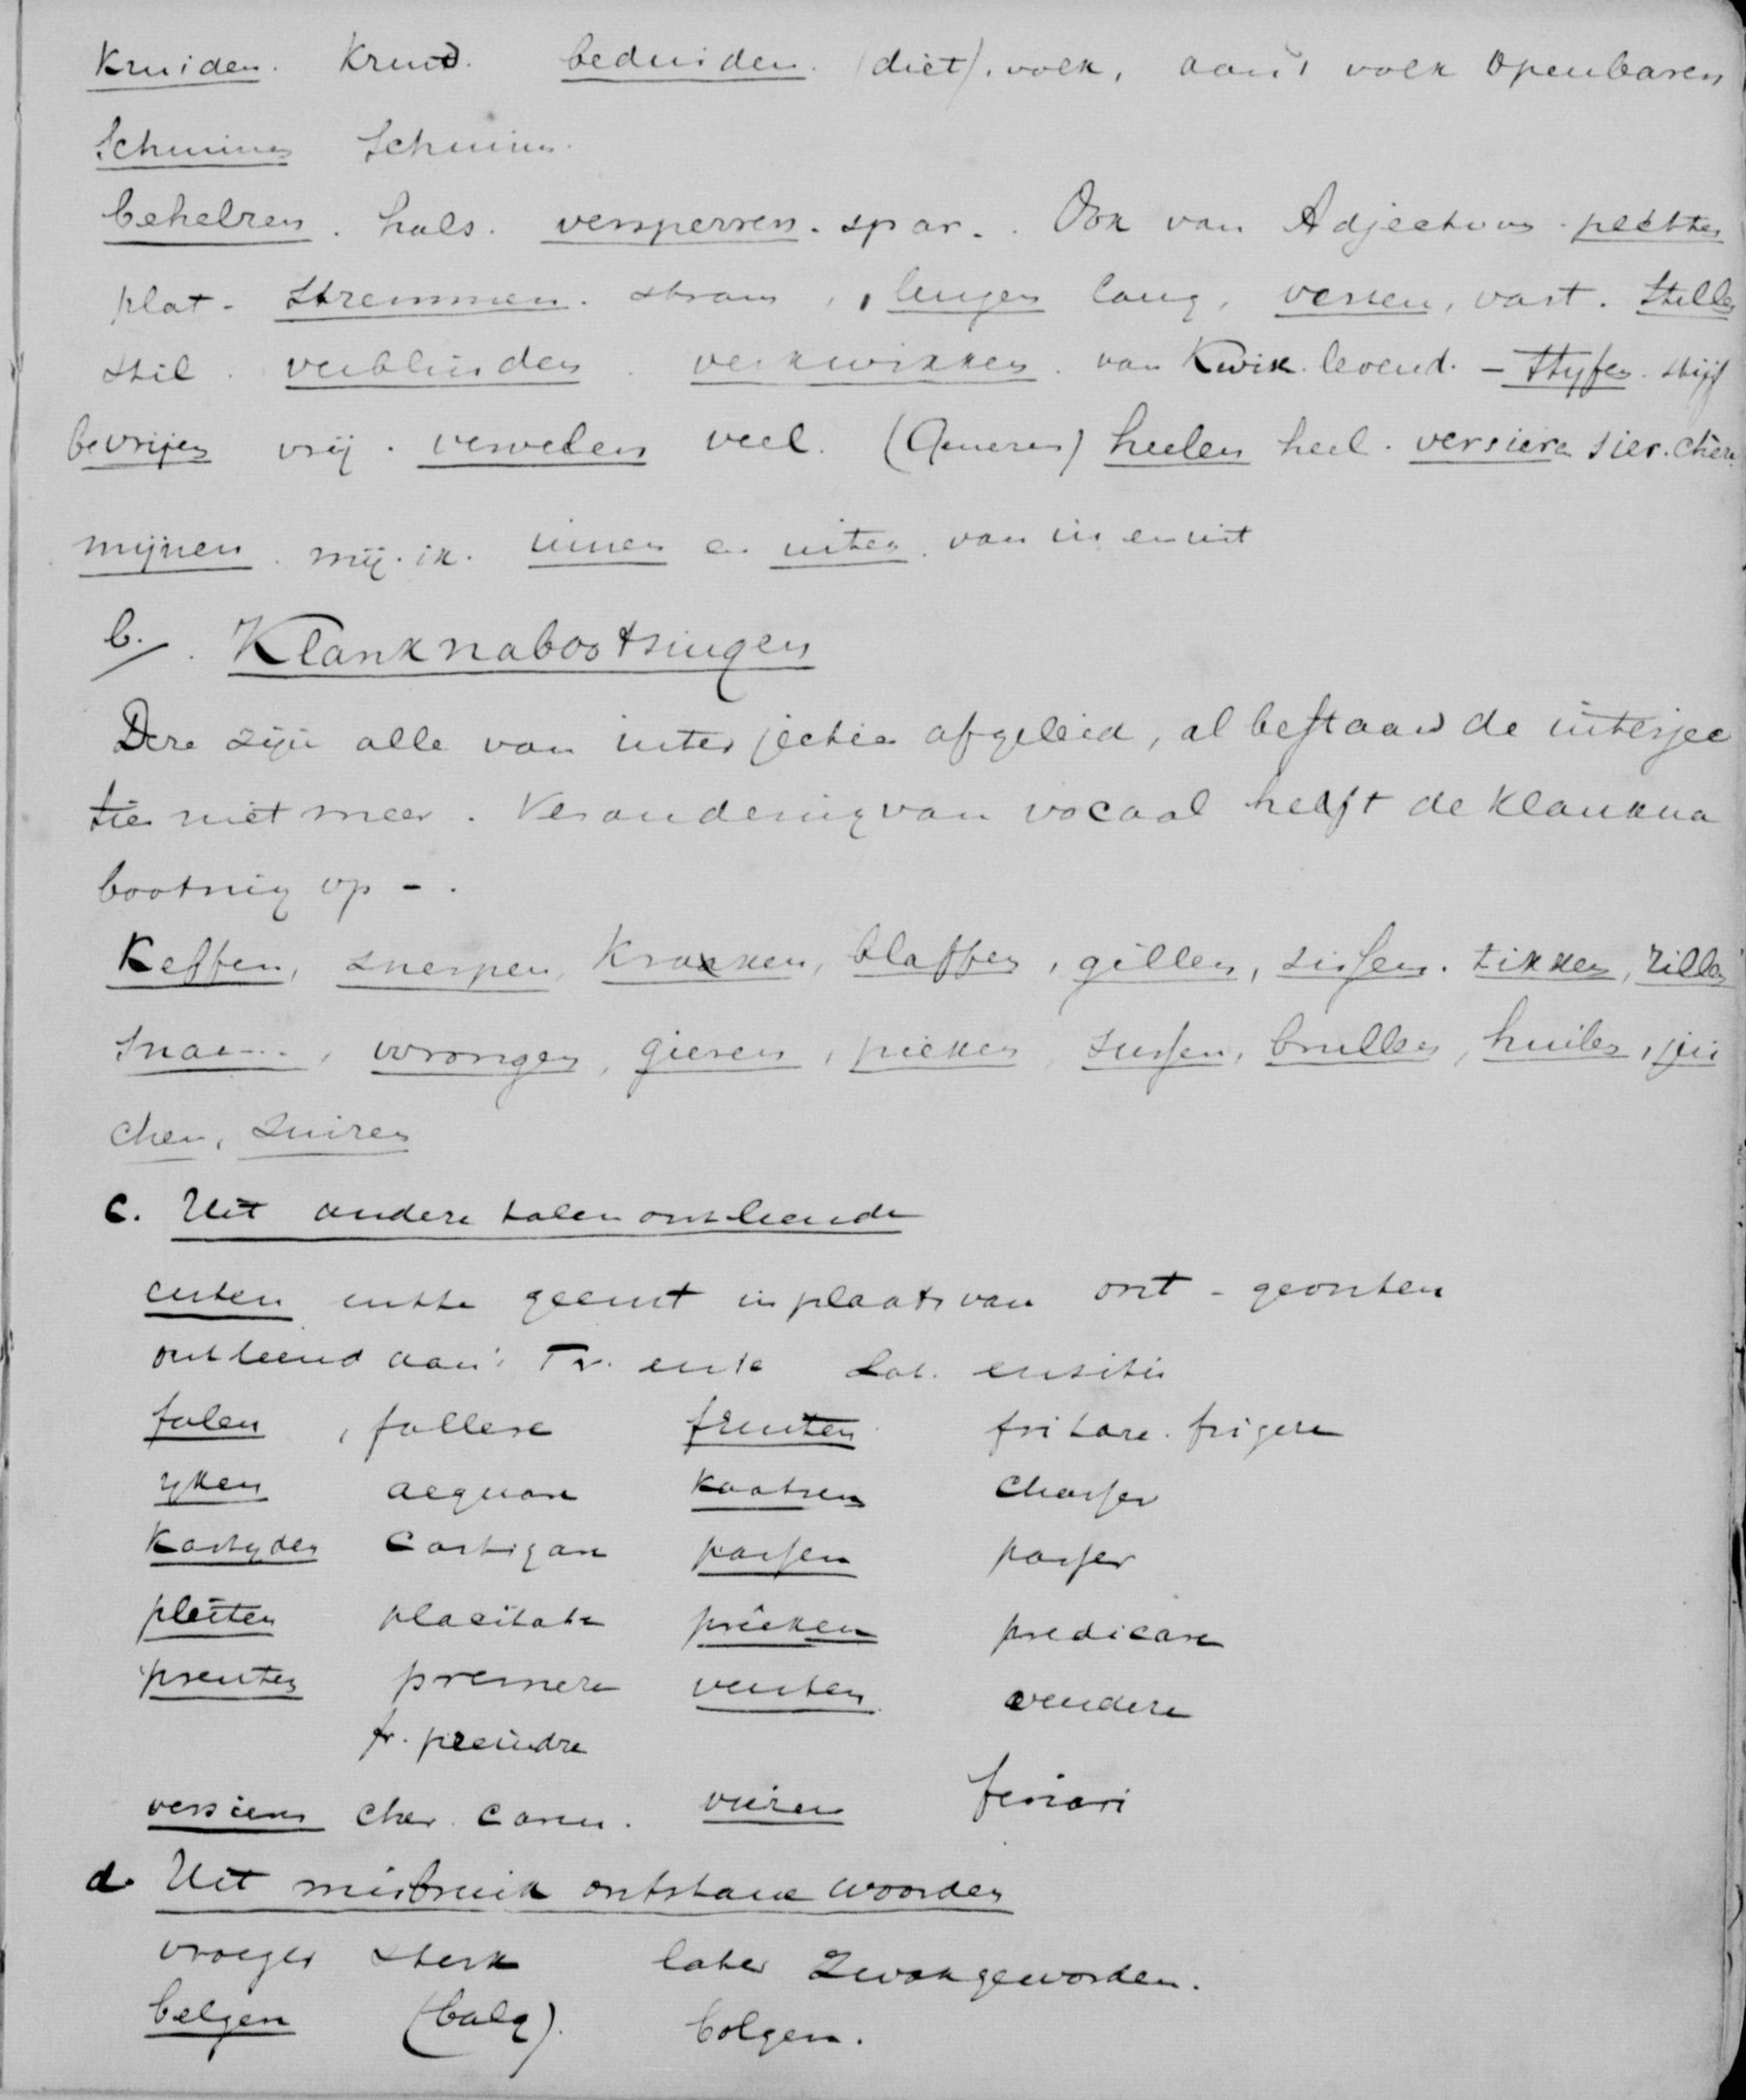 Kruiden. Kruid. beduiden. (diet). volk, aan 't volk openbaren
Schuimen Schuim.
behelzen. hals. versperren. spar. Ook van Adjectiven. pletten
plat - stremmen. stram, lengen lang, vesten, vast. stellen
stil. verblinden. verkwikken. van Kwik. levend. - Styfen. stijf
bevrijen vrij. vervelen veel. (Generen) heelen heel. versieren sier. chère
mijnen. mij. ik. innen en uiten. van in en uit
b./. Klanknabootsingen
Deze zijn alle van interjectien afgeleid, al bestaan de interjec
tien niet meer. Verandering van vocaal heeft de klankna
bootsing op - .
Keffen, snerpen, Krakken, blaffen, gillen, sissen. tikken, rillen
wrongen, gieren, pieken, sussen, brullen, huilen, jui
chen, suizen
C. Uit andere talen ontleende
enten entte geent in plaats van ont - geonten
ontleend aan 't Fr. ente Lat. ensitis
falen, fallere fruiten fritare. frigere
yken aequare kaatsen chasser
Kastyden Castigare passen passer
pleiten placitate preeken predicare
prenten premere venten vendere
fr. preindre
versieren cher. caren. vieren feriari
d. Uit misbruik ontstane woorden
vroeger sterk later zwak geworden.
belgen (balg). bolgen.